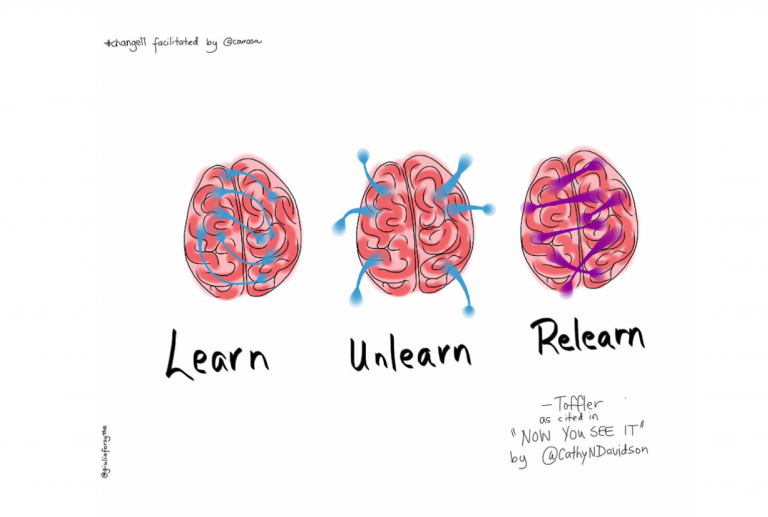 #change11 facilitated by @courosa
Learn
Unlearn
Relearn
— Toffler
as cited in
"NOW YOU SEE IT"
by @CathyNDavidson
@giuliaforsythe